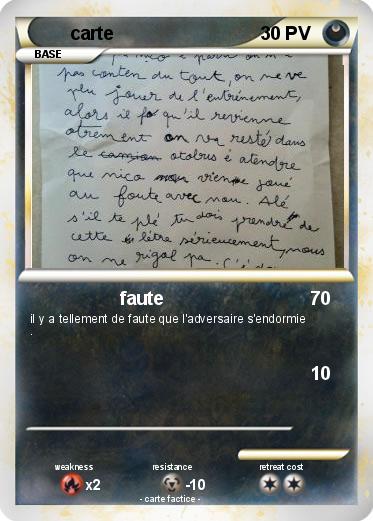 carte 30 PV
BASE
pas conten du tout, on ne ve
plu jouer de l'entrénement,
alors il fo qu'il revienne
otrement on va resté dans
le camion otobus é atendre
que nico vienne joué
au foute avec nou. Alé
s'il te plé tu dois prendre de
cette létre sérieusement, nous
on ne rigol pa.
faute 70
il y a tellement de faute que l'adversaire s'endormie
.
10
weakness resistance retreat cost
x2 -10
- carte factice -